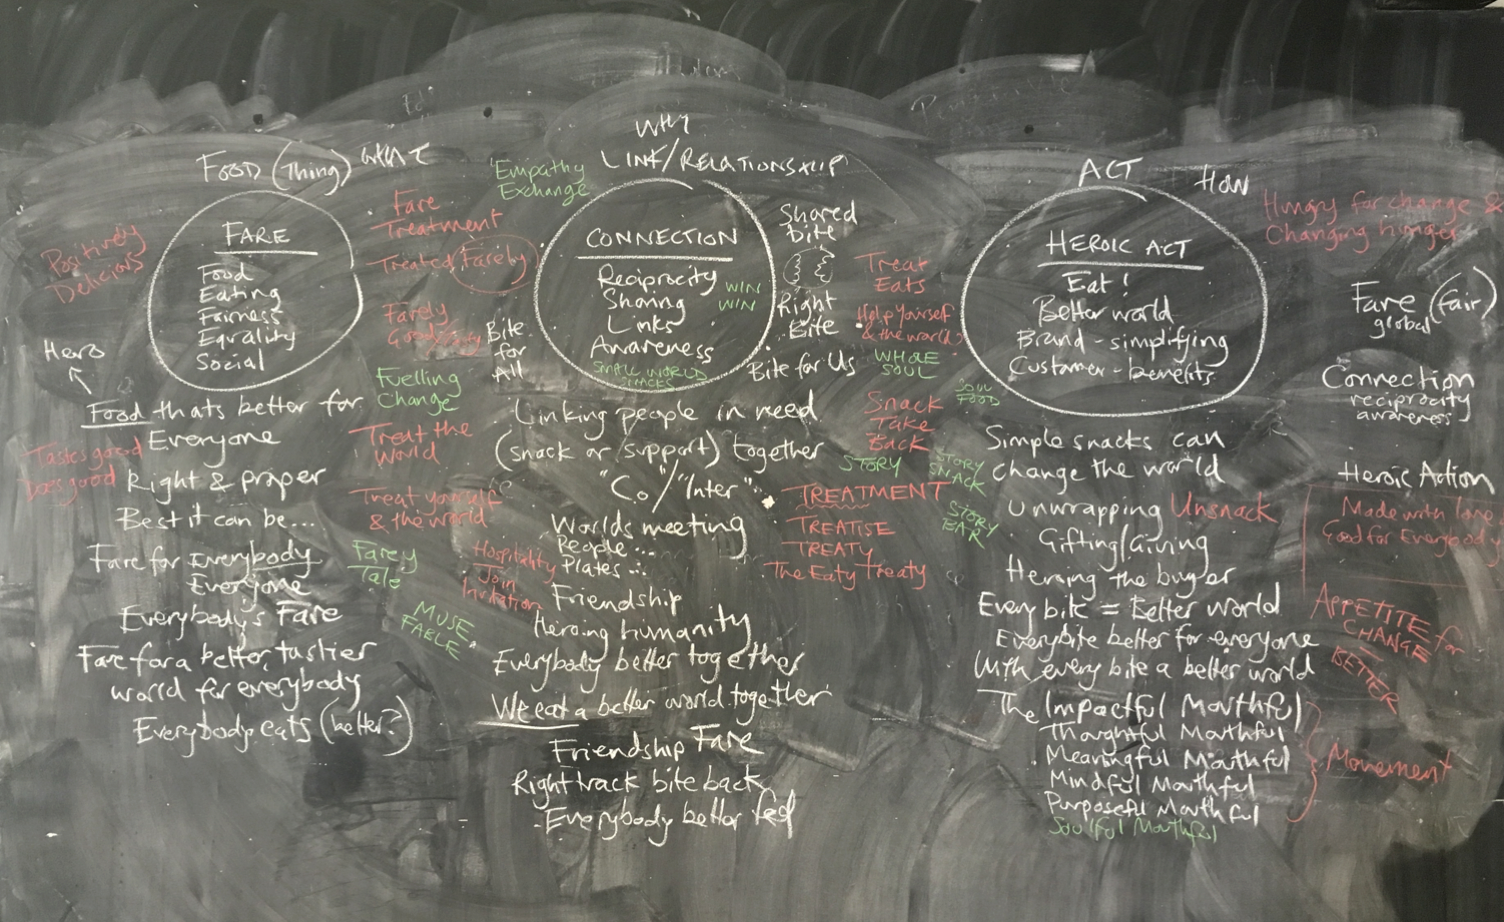 FOOD (Thing) WHAT
FARE
Food
Eating
Fairness
Equality
Social
Positively
Delicious
Hero
Food thats better for
Everyone
Tastes good
Does good
Right & proper
Best it can be...
Fare for Everybody
Everyone
Everybody's Fare
Fare for a better, tastier
world for everybody
Everybody eats (better?)
Fare
Treatment
Treated Farely
Farely
Good
Fuelling
Change
Treat the
World
Treat yourself
& the world
Farey
Tale
MUSE
FABLE
'Empathy
Exchange'
Bite
for
All
Hospitality
Join
Invitation
WHY
LINK/RELATIONSHIP
CONNECTION
Reciprocity
Sharing
Links
Awareness
SMALL WORLD
SNACKS
WIN
WIN
Linking people in need
(snack or support) together
"Co"/"Inter"
Worlds meeting
People...
Plates
Friendship
Heroing humanity
Everybody better together
We eat a better world together
Friendship Fare
Right track bite back
Everybody better fed
Shared
bite
Right
Bite
Bite for Us
Treat
Eats
Help yourself
& the world?
WHOLE
SOUL
Snack
Take
Back
STORY
TREATMENT
TREATISE
TREATY
The Eaty Treaty
SOUL
FOOD
STORY
SNACK
STORY
BAR
ACT
HOW
HEROIC ACT
Eat!
Better world
Brand - simplifying
Customer - benefits
Simple snacks can
change the world
Unwrapping Unsnack
Gifting/Giving
Heroing the buyer
Every bite = Better world
Everybite better for everyone
With every bite a better world
The Impactful Mouthful
Thoughtful Mouthful
Meaningful Mouthful
Mindful Mouthful
Purposeful Mouthful
Soulful Mouthful
Movement
Hungry for change &
Changing hunger
Fare (fair)
global
Connection
reciprocity
awareness
Heroic Action
Made with love
Good for Everybody
APPETITE for
CHANGE
BETTER